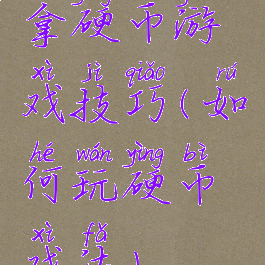 拿硬币游
xì jì qiǎo rú
戏技巧(如
hé wán yìng bì
何玩硬币
xì fǎ
戏法)